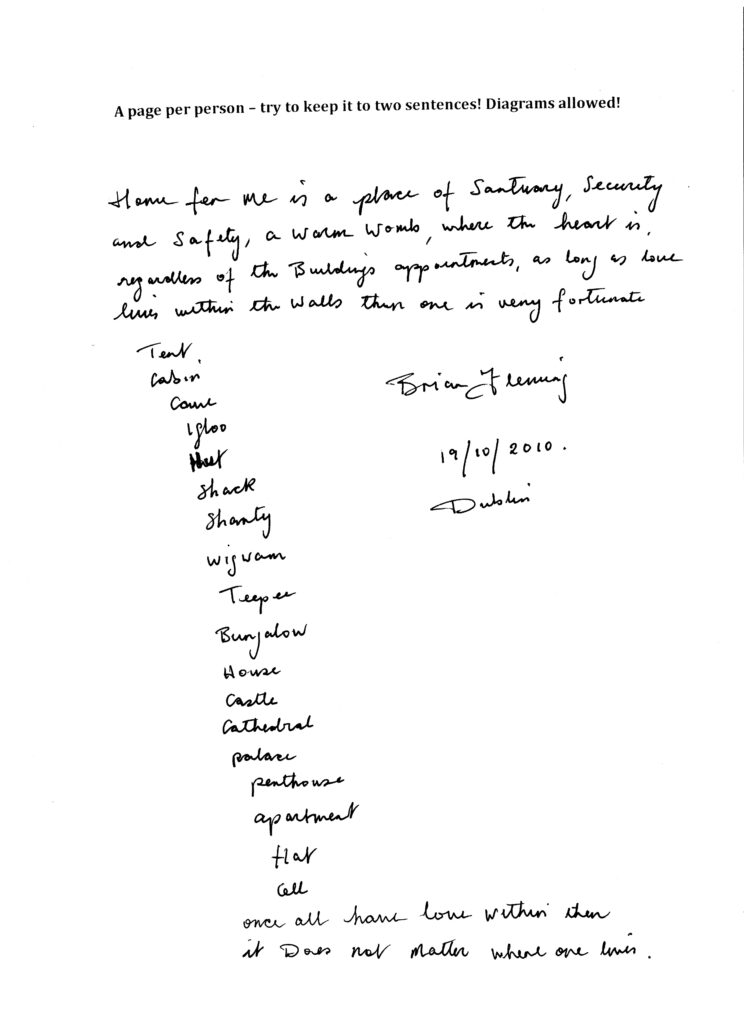 A page per person – try to keep it to two sentences! Diagrams allowed!
Home for me is a place of Santuary, Security
and Safety, a warm womb, where the heart is,
regardless of the Buildings appointments, as long as love
lives within the walls then one is very fortunate
Tent,
Cabin
Cave
Igloo
Hut
Shack
Shanty
wigwam
Teepee
Bungalow
House
Castle
Cathedral
palace
penthouse
apartment
flat
Cell
Brian Fleming
19/10/2010.
Dublin
once all have love within then
it Does not matter where one lives.